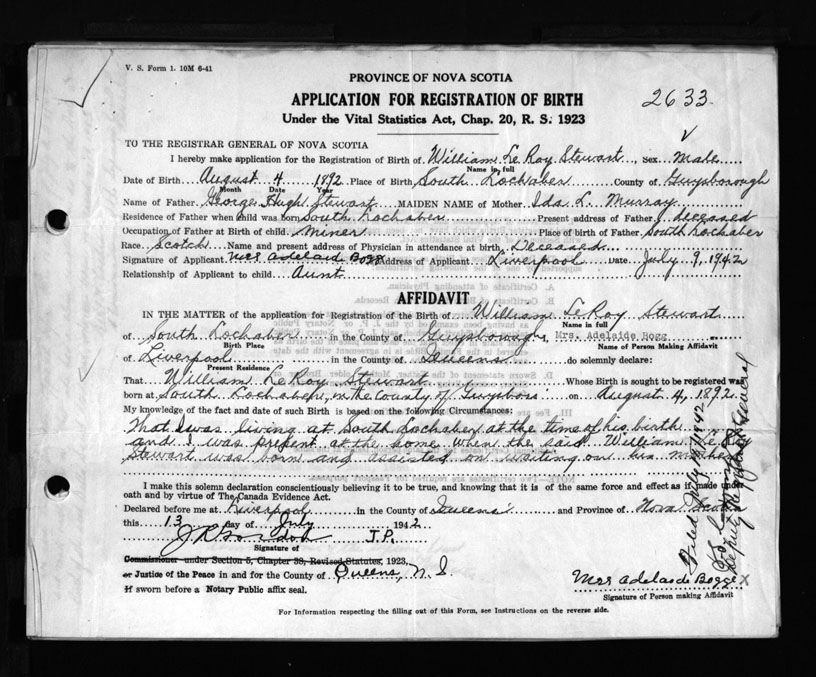 V. S. Form 1. 10M 6-41
PROVINCE OF NOVA SCOTIA
APPLICATION FOR REGISTRATION OF BIRTH
2633
Under the Vital Statistics Act, Chap. 20, R. S. 1923
TO THE REGISTRAR GENERAL OF NOVA SCOTIA
I hereby make application for the Registration of Birth of William Le Roy Stewart, Sex Male
Name in full
Date of Birth August 4 1892 Place of Birth South Lochaber County of Guysborough
Month Date Year
Name of Father George Hugh Stewart MAIDEN NAME of Mother Ida L. Murray
Residence of Father when child was born South Lochaber Present address of Father deceased
Occupation of Father at Birth of child Miner Place of birth of Father South Lochaber
Race Scotch Name and present address of Physician in attendance at birth Deceased
Signature of Applicant Mrs Adelaid Bogge Address of Applicant Liverpool Date July 9, 1942
Relationship of Applicant to child Aunt
AFFIDAVIT
IN THE MATTER of the application for Registration of the Birth of William LeRoy Stewart
Name in full
of South Lochaber in the County of Guysborough, Mrs. Adelaide Bogg
Birth Place Name of Person Making Affidavit
of Liverpool in the County of Queens do solemnly declare:
Present Residence
That William Le Roy Stewart Whose Birth is sought to be registered was
born at South Lochaber, in the County of Guysboro on August 4, 1892
My knowledge of the fact and date of such Birth is based on the following Circumstances:
That I was living at South Lochaber at the time of his birth
and I was present at the home when the said William Le Roy
Stewart was born and assisted on waiting on his mother
I make this solemn declaration conscientiously believing it to be true, and knowing that it is of the same force and effect as if made under
oath and by virtue of The Canada Evidence Act.
Declared before me at Liverpool in the County of Queens and Province of Nova Scotia
this 13 day of July 1942
J.P.
Signature of
Commissioner under Section 5, Chapter 38, Revised Statutes, 1923,
or Justice of the Peace in and for the County of Queens, N.S.
If sworn before a Notary Public affix seal.
Mrs Adelaide Bogge X
Signature of Person making Affidavit
For Information respecting the filling out of this Form, see Instructions on the reverse side.
Filed July 1942
Deputy Registrar General